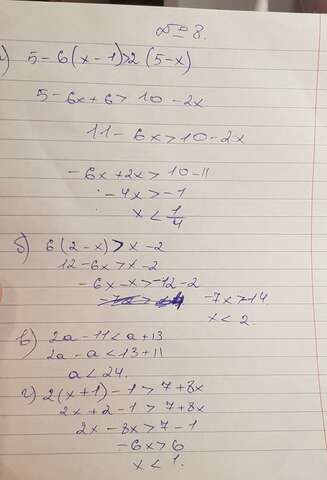 № 8.
а) 5-6(x-1)>2(5-x)
5-6x+6>10-2x
11-6x>10-2x
-6x+2x>10-11
-4x>-1
x<1/4
б) 6(2-x)>x-2
12-6x>x-2
-6x-x>-12-2
-7x>-14
x<2.
в) 2a-11<a+13
2a-a<13+11
a<24.
г) 2(x+1)-1>7+8x
2x+2-1>7+8x
2x-8x>7-1
-6x>6
x<1.